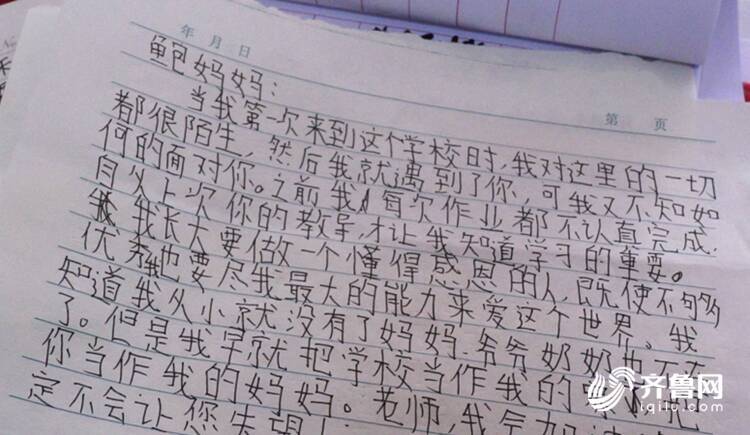 年 月 日
鲍妈妈:
第 页
当我第一次来到这个学校时,我对这里的一切
都很陌生,然后我就遇到了你,可我又不知如
何的面对你。之前我每次作业都不认真完成.
自从上次你的教导,才让我知道学习的重要。
我长大要做一个懂得感恩的人,既使不够
优秀我也要尽我最大的能力来爱这个世界。我
知道我从小就没有了妈妈.爷爷奶奶也
了。但是我早就把学校当作我的
你当作我的妈妈。老师,我会加
定不会让您失望!
齐鲁网
iqilu.com